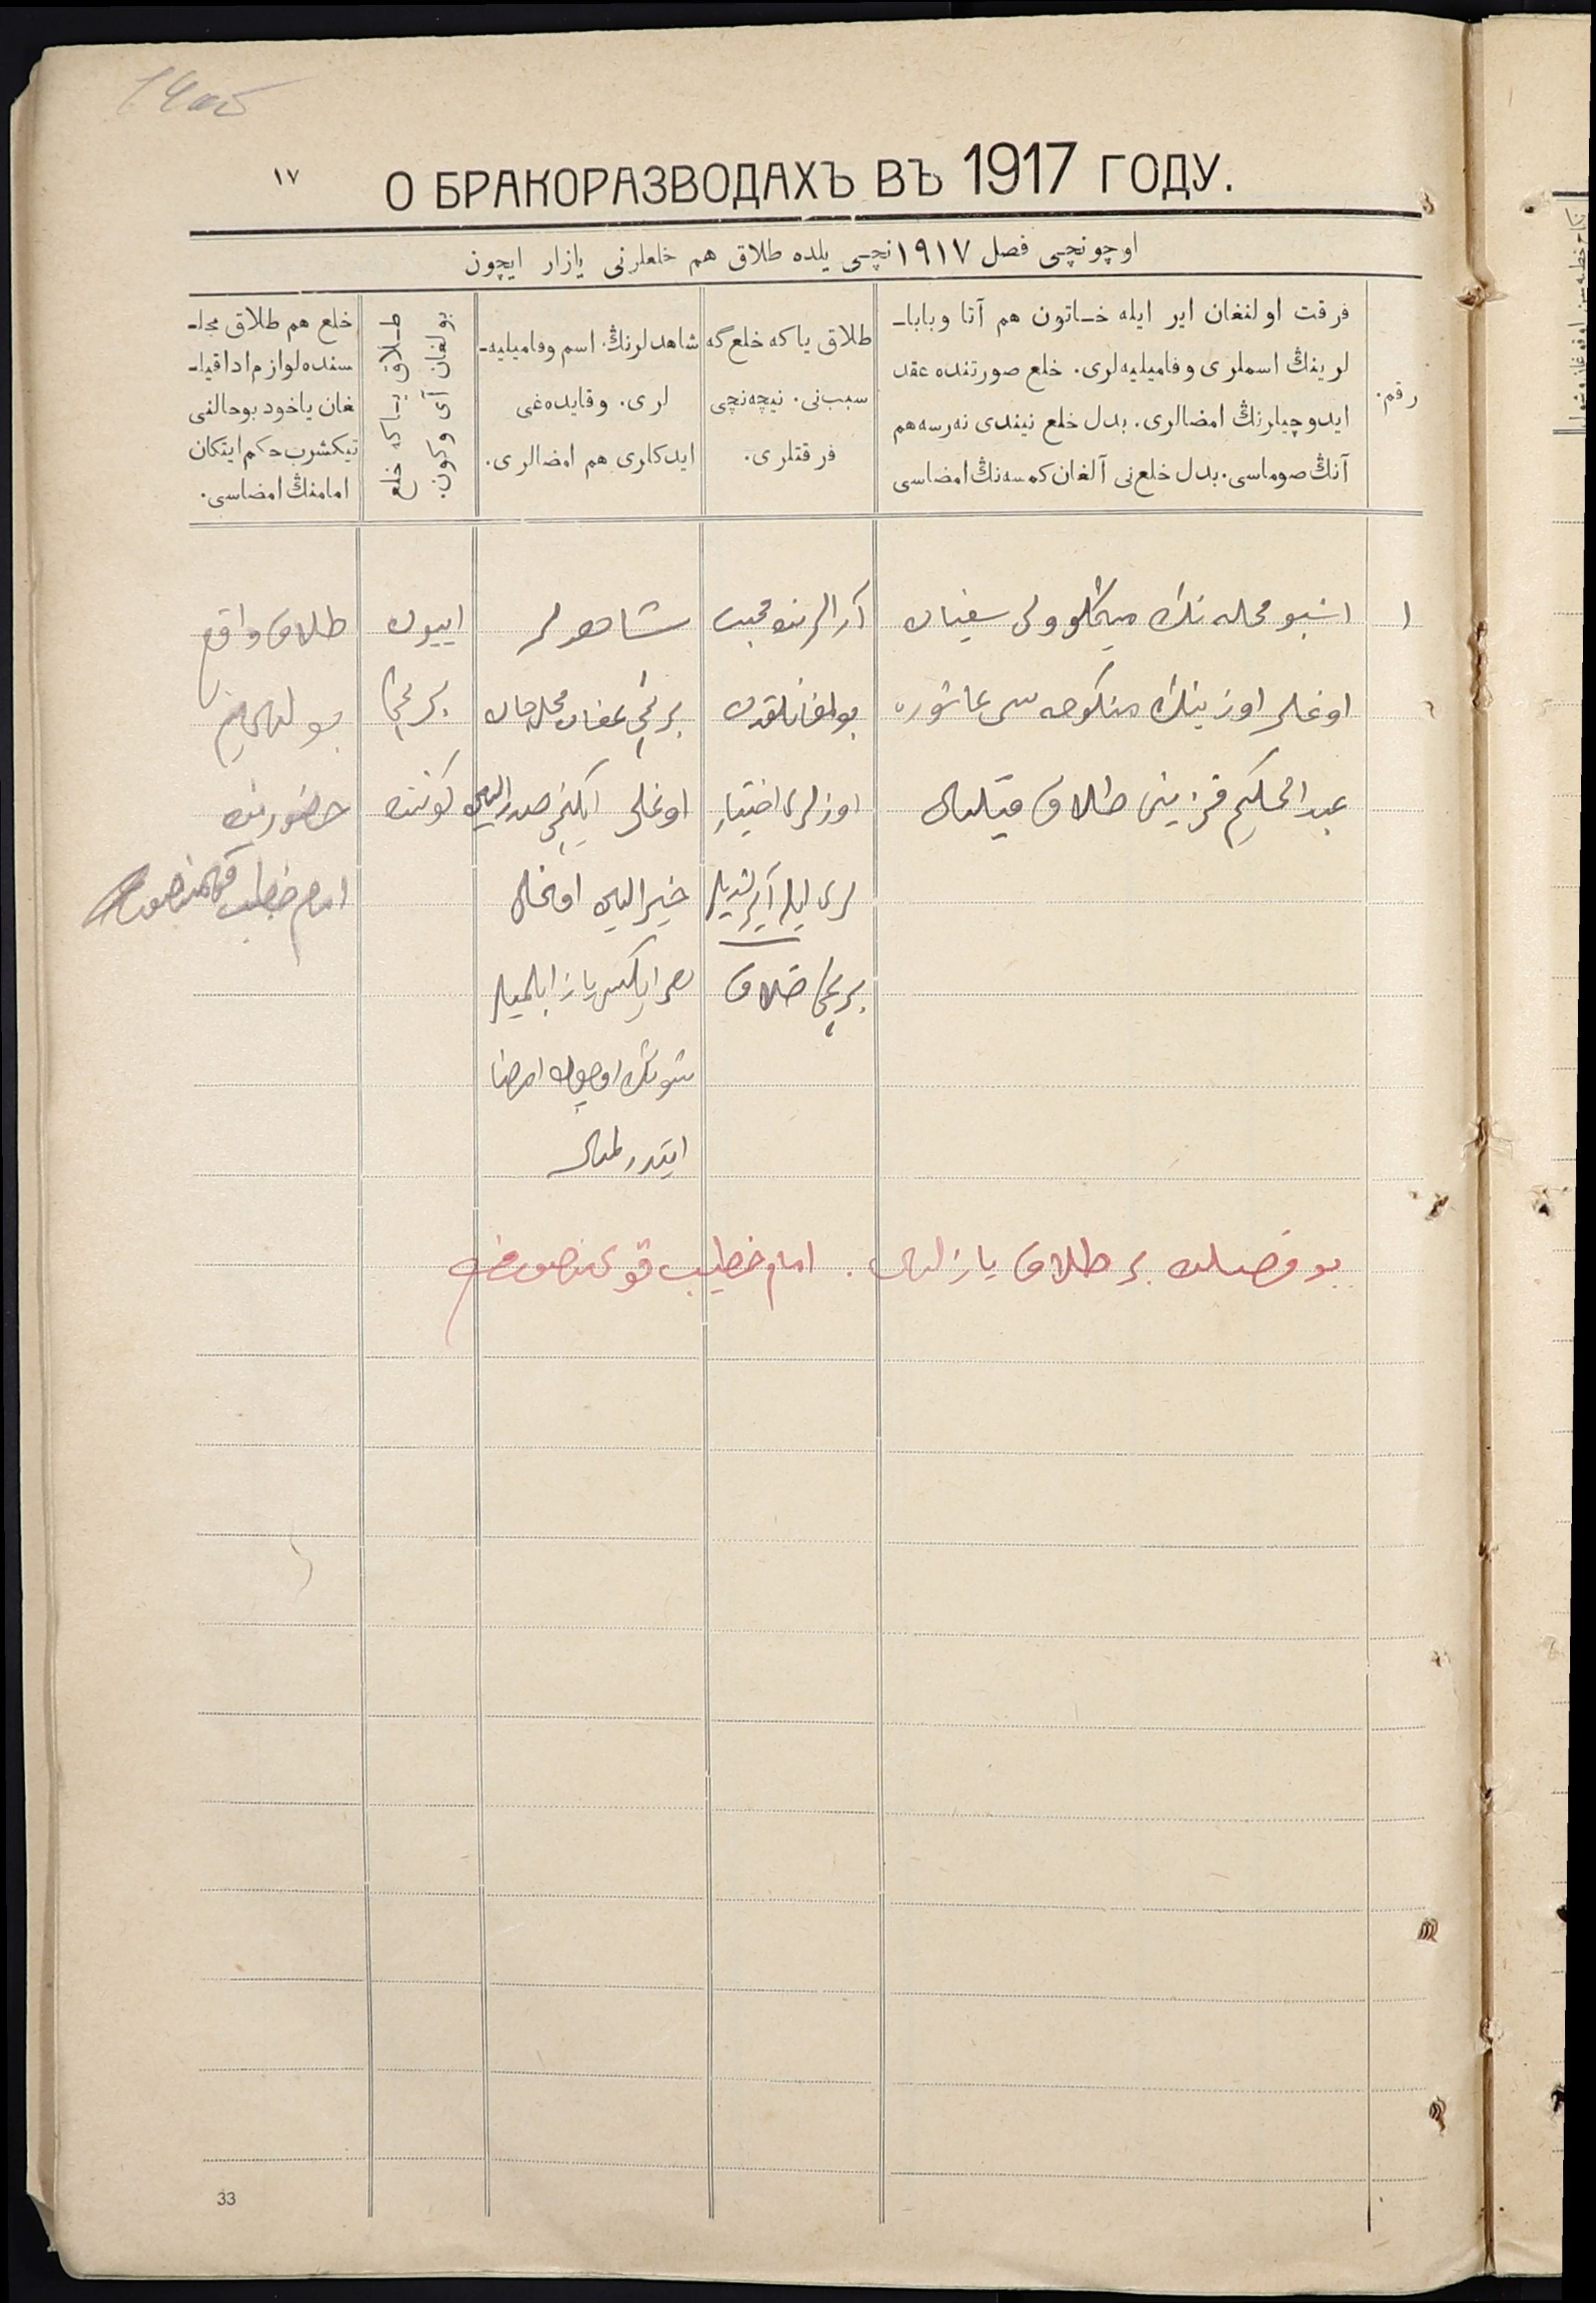 ١٧
О БРАКОРАЗВОДАХЪ ВЪ 1917 ГОДУ.
اوچونچی فصل ١٩١٧نچی یلده طلاق هم خلعلرنی یازار ایچون
رقم.
فرقت اولنغان ایر ایله خاتون هم آتا وبابا-
لرینڭ اسملری وفامیلیه‌لری. خلع صورتنده عقد
ایدوچیلرنڭ امضالری. بدل خلع نیندی نه‌رسه هم
آنڭ صوماسی. بدل خلع‌نی آلغان کمسه‌نڭ امضاسی
طلاق یاکه خلع‌گه
سبب‌نی. نیچه‌نچی
فرقتلری.
شاهدلرنڭ. اسم وفامیلیه-
لری. وقایده‌غی
ایدکلری هم امضالری.
طلاق یاکه خلع
بولغان آی وکون.
خلع هم طلاق مجلـ
سنده لوازم ادا قیلـ
غان یاخود بو حالنی
تیکشرب حکم ایتکان
امامنڭ امضاسی.
١
اشبو محله ننڭ سفیان
اوغلی اوزینڭ منکوحه سی عاشوره
عبدالحکیم قزینی طلاق قیلدی
آرالرنده محبت
بولمغانلقدن
اوزلری اختیار
لری ایله آیرلدیلر
برنچی طلاق
شاهدلر
برنچی
اوغلی ایکنچی صدرالدین
خیرالدین اوغلی
هر ایکیسی یازا بلمیلر
امضا
ایتدرلدی
اییون
برنچی
کوننده
طلاق واقع
بولدی
حضورنده
امام خطیب
بو فصلده بر طلاق یازلدی. امام خطیب
33